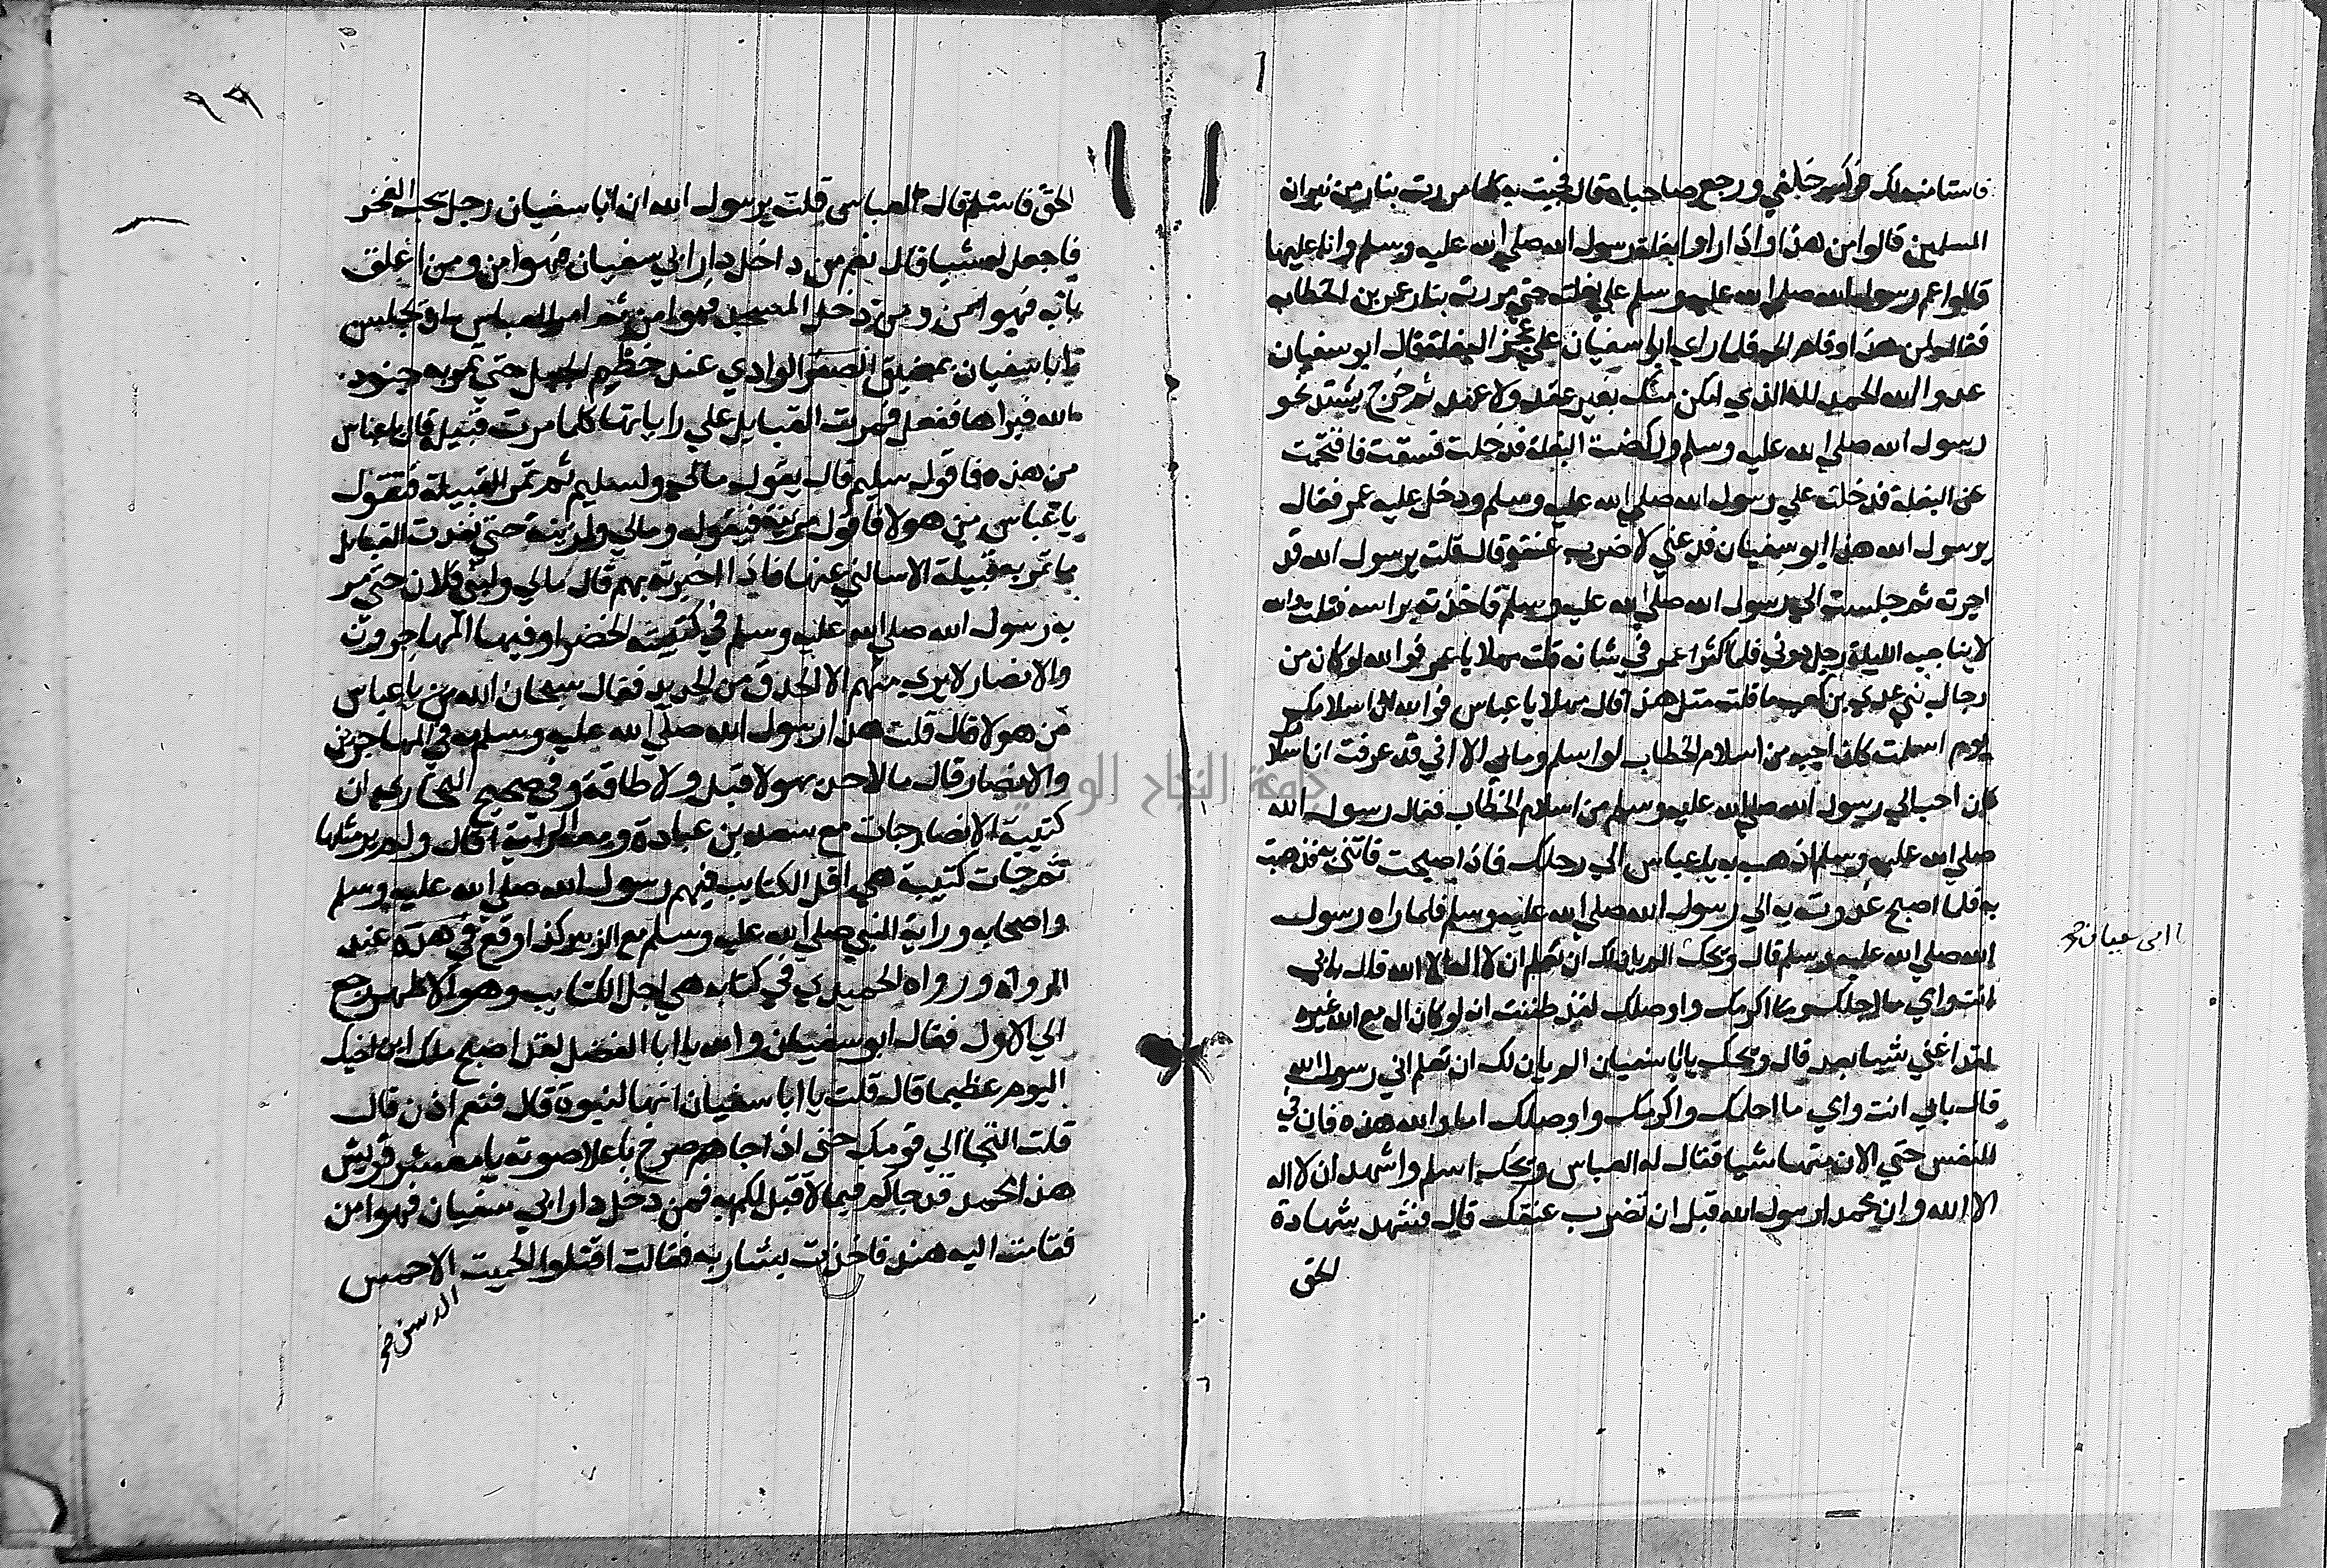 فاستامنه لك فركب خلفي ورجع صاحباه قال فجيت به كلما مررت بنار من نيران
المسلمين قالوا من هذا واذا راوا بغلة رسول الله صلي الله عليه وسلم وانا عليها
قالوا عم رسول الله صلي الله عليه وسلم علي بغلته حتي مررت بنار عمر بن الخطاب
فقال من هذا وقام الي فلما راي ابا سفيان علي عجز البغلة قال ابو سفيان
عدو الله الحمد لله الذي امكن منك بغير عقد ولا عهد ثم خرج يشتد نحو
رسول الله صلي الله عليه وسلم وركضت البغلة فدخلت فسبقت فاقتحمت
عن البغلة فدخلت علي رسول الله صلي الله عليه وسلم ودخل عليه عمر فقال
يرسول الله هذا ابو سفيان فدعني لاضرب عنقه قال قلت يرسول الله قد
اجرته ثم جلست الي رسول الله صلي الله عليه وسلم فاخذته براسه فقلت والله
لا يناجيه الليلة رجل دوني فلما اكثر عمر في شانه قلت مهلا يا عمر فوالله لو كان من
رجال بني عدي بن كعب ما قلت مثل هذا قال مهلا يا عباس فوالله لاسلامك
يوم اسلمت كان احب من اسلام الخطاب لو اسلم وما بي الا اني قد عرفت ان اسلامك
كان احب الي رسول الله صلي الله عليه وسلم من اسلام الخطاب فقال رسول الله
صلي الله عليه وسلم اذهب به يا عباس الي رحلك فاذا اصبحت فاتني به فذهبت
به فلما اصبح غدوت به الي رسول الله صلي الله عليه وسلم فلما راه رسول
الله صلي الله عليه وسلم قال ويحك الم يان لك ان تعلم ان لا اله الا الله قال بابي
انت وامي ما احلمك وما اكرمك واوصلك لقد ظننت ان لو كان اله مع الله غيره
لقد اغني شيا بعد قال ويحك يا ابا سفيان الم يان لك ان تعلم اني رسول الله
قال بابي انت وامي ما احلمك واكرمك واوصلك اما والله هذه فان في
النفس حتي الان منها شيا فقال له العباس ويحك اسلم واشهد ان لا اله
الا الله وان محمدا رسول الله قبل ان تضرب عنقك قال فشهد شهادة
الحق
الحق فاسلم قال العباس قلت يرسول الله ان ابا سفيان رجل يحب الفخر
فاجعل له شيا قال نعم من داخل دار ابي سفيان فهو امن ومن اغلق
بابه فهو امن ومن دخل المسجد فهو امن ثم امر العباس ان يجلس
ابا سفيان بمضيق الوادي عند خطم الجبل حتي تمر به جنود
الله فيراها ففعل فمرت القبايل علي راياتها كلما مرت قبيلة قال يا عباس
من هذه فاقول سليم قال يقول مالي ولسليم ثم تمر القبيلة فيقول
يا عباس من هولا فاقول مزينة فيقول ومالي ولمزينة حتي نفدت القبايل
ما تمر به قبيلة الا سالني عنها فاذا اخبرته بهم قال مالي ولبني فلان حتي مر
به رسول الله صلي الله عليه وسلم في كتيبته الخضرا وفيها المهاجرون
والانصار لا يري منهم الا الحدق من الحديد فقال سبحان الله من يا عباس
من هولا قال قلت هذا رسول الله صلي الله عليه وسلم في المهاجرين
والانصار قال ما لاحد بهولا قبل ولا طاقة وفي صحيح البخاري ان
كتيبة الانصار جات مع سعد بن عبادة ومعه الراية قال ولم ير مثلها
ثم جات كتيبة هي اقل الكتايب فيهم رسول الله صلي الله عليه وسلم
واصحابه وراية النبي صلي الله عليه وسلم مع الزبير كذا وقع في هذه عند
الرواة ورواه الحميدي في كتابه هي اجل الكتايب وهو الاظهر رجع
الي الاول فقال ابو سفيان والله يا ابا الفضل لقد اصبح ملك ابن اخيك
اليوم عظيما قال قلت يا ابا سفيان انها النبوة قال فنعم اذن قال
قلت النجا الي قومك حتى اذا جاهم صرخ باعلا صوته يا معشر قريش
هذا محمد قد جاكم فيما لا قبل لكم به فمن دخل دار ابي سفيان فهو امن
فقامت اليه هند فاخذت بشاربه فقالت اقتلوا الحميت الاحمس
الدسم